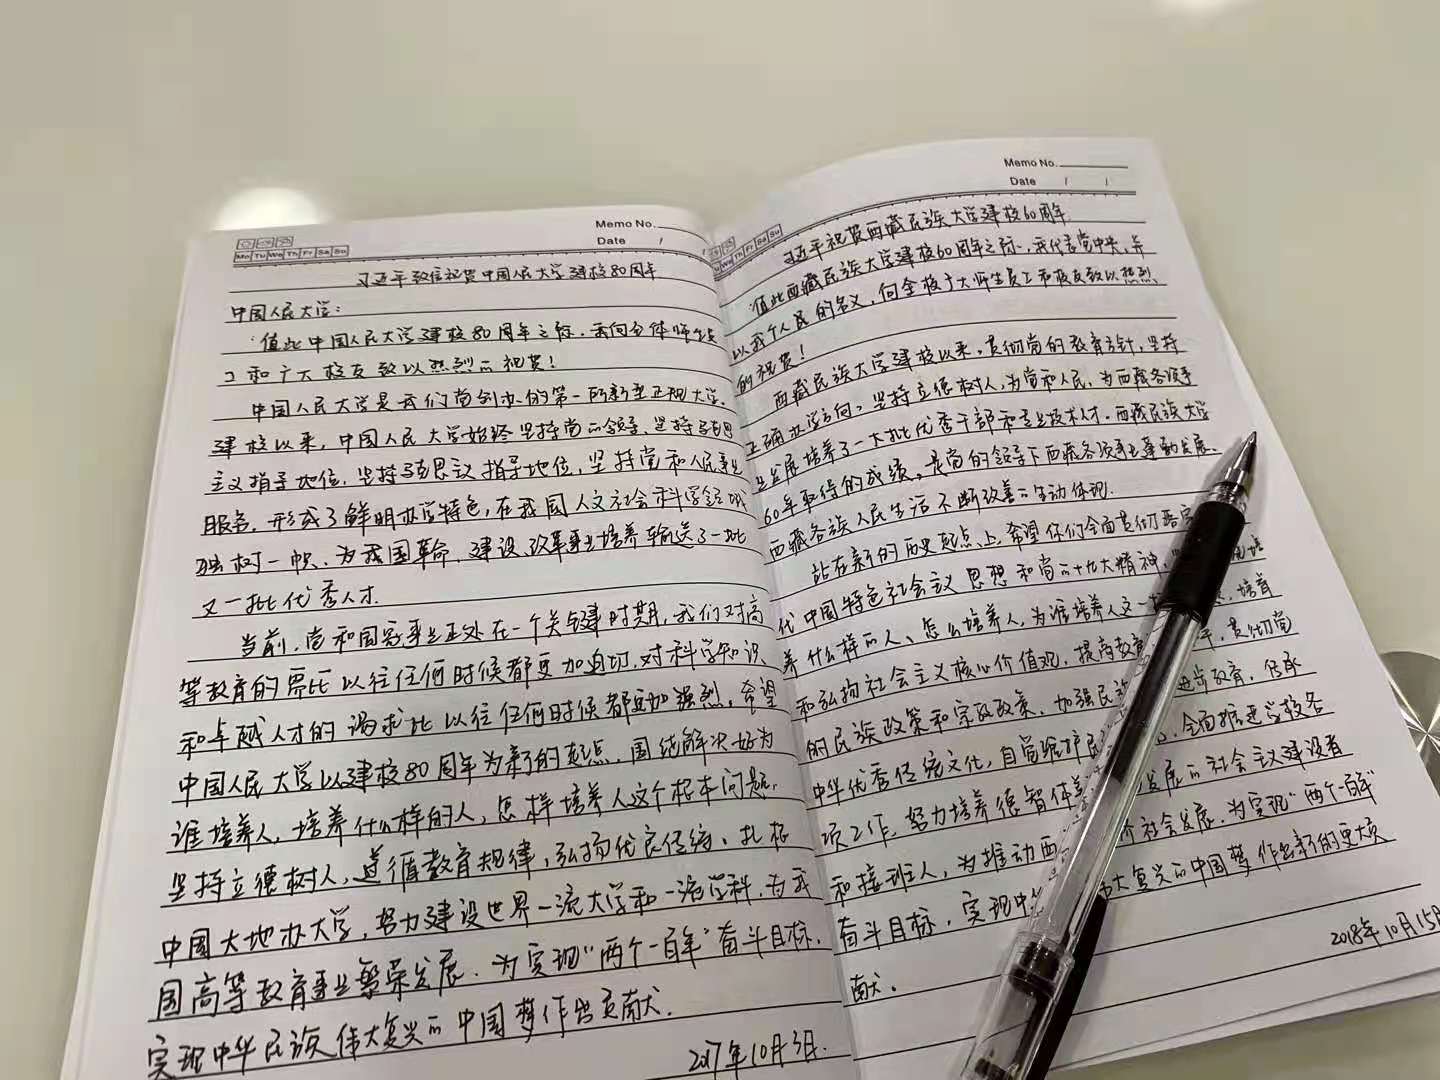 Memo No.
Date / /
Mo Tu We Th Fr Sa Su
习近平致信祝贺中国人民大学建校80周年
中国人民大学:
值此中国人民大学建校80周年之际,我向全体师生员
工和广大校友致以热烈的祝贺!
中国人民大学是我们党创办的第一所新型正规大学。
建校以来,中国人民大学始终坚持党的领导,坚持马克思
主义指导地位,坚持马克思主义指导地位,坚持党和人民事业
服务,形成了鲜明办学特色,在我国人文社会科学领域
独树一帜,为我国革命、建设、改革事业培养输送了一批
又一批优秀人才.
当前,党和国家事业正处在一个关键时期,我们对高
等教育的需比以往任何时候都更加迫切,对科学知识
和卓越人才的渴求比以往任何时候都更加强烈。希望
中国人民大学以建校80周年为新的起点,围绕解决好为
谁培养人、培养什么样的人、怎样培养人这个根本问题,
坚持立德树人,遵循教育规律,弘扬优良传统,扎根
中国大地办大学,努力建设世界一流大学和一流学科,为我
国高等教育事业繁荣发展,为实现"两个一百年"奋斗目标,
实现中华民族伟大复兴的中国梦作出贡献.
2017年10月3日.
Memo No.
Date / /
Th Fr Sa Su
习近平祝贺西藏民族大学建校60周年
值此西藏民族大学建校60周年之际,我代表党中央,并
以我个人民的名义,向全校广大师生员工和校友致以热烈
的祝贺!
西藏民族大学建校以来,贯彻党的教育方针,坚持
正确办学方向,坚持立德树人,为党和人民,为西藏各项事
业发展培养了一大批优秀干部和专业技术人才。西藏民族大学
60年取得的成绩,是党的领导下西藏各项事业蓬勃发展、
西藏各族人民生活不断改善的生动体现.
站在新的历史起点上,希望你们全面贯彻落实
代中国特色社会主义思想和党的十九大精神,培
养什么样的人、怎么培养人,为谁培养人这一 培育
和弘扬社会主义核心价值观,提高教育 平,贯彻党
的民族政策和宗教政策,加强民族 进步教育,传承
中华优秀传统文化,自觉维护民 全面推进学校各
项工作,努力培养德智体美 发展的社会主义建设者
和接班人,为推动西 社会发展,为实现"两个一百年"
奋斗目标,实现中 伟大复兴的中国梦作出新的更大贡
献.
2018年10月15日